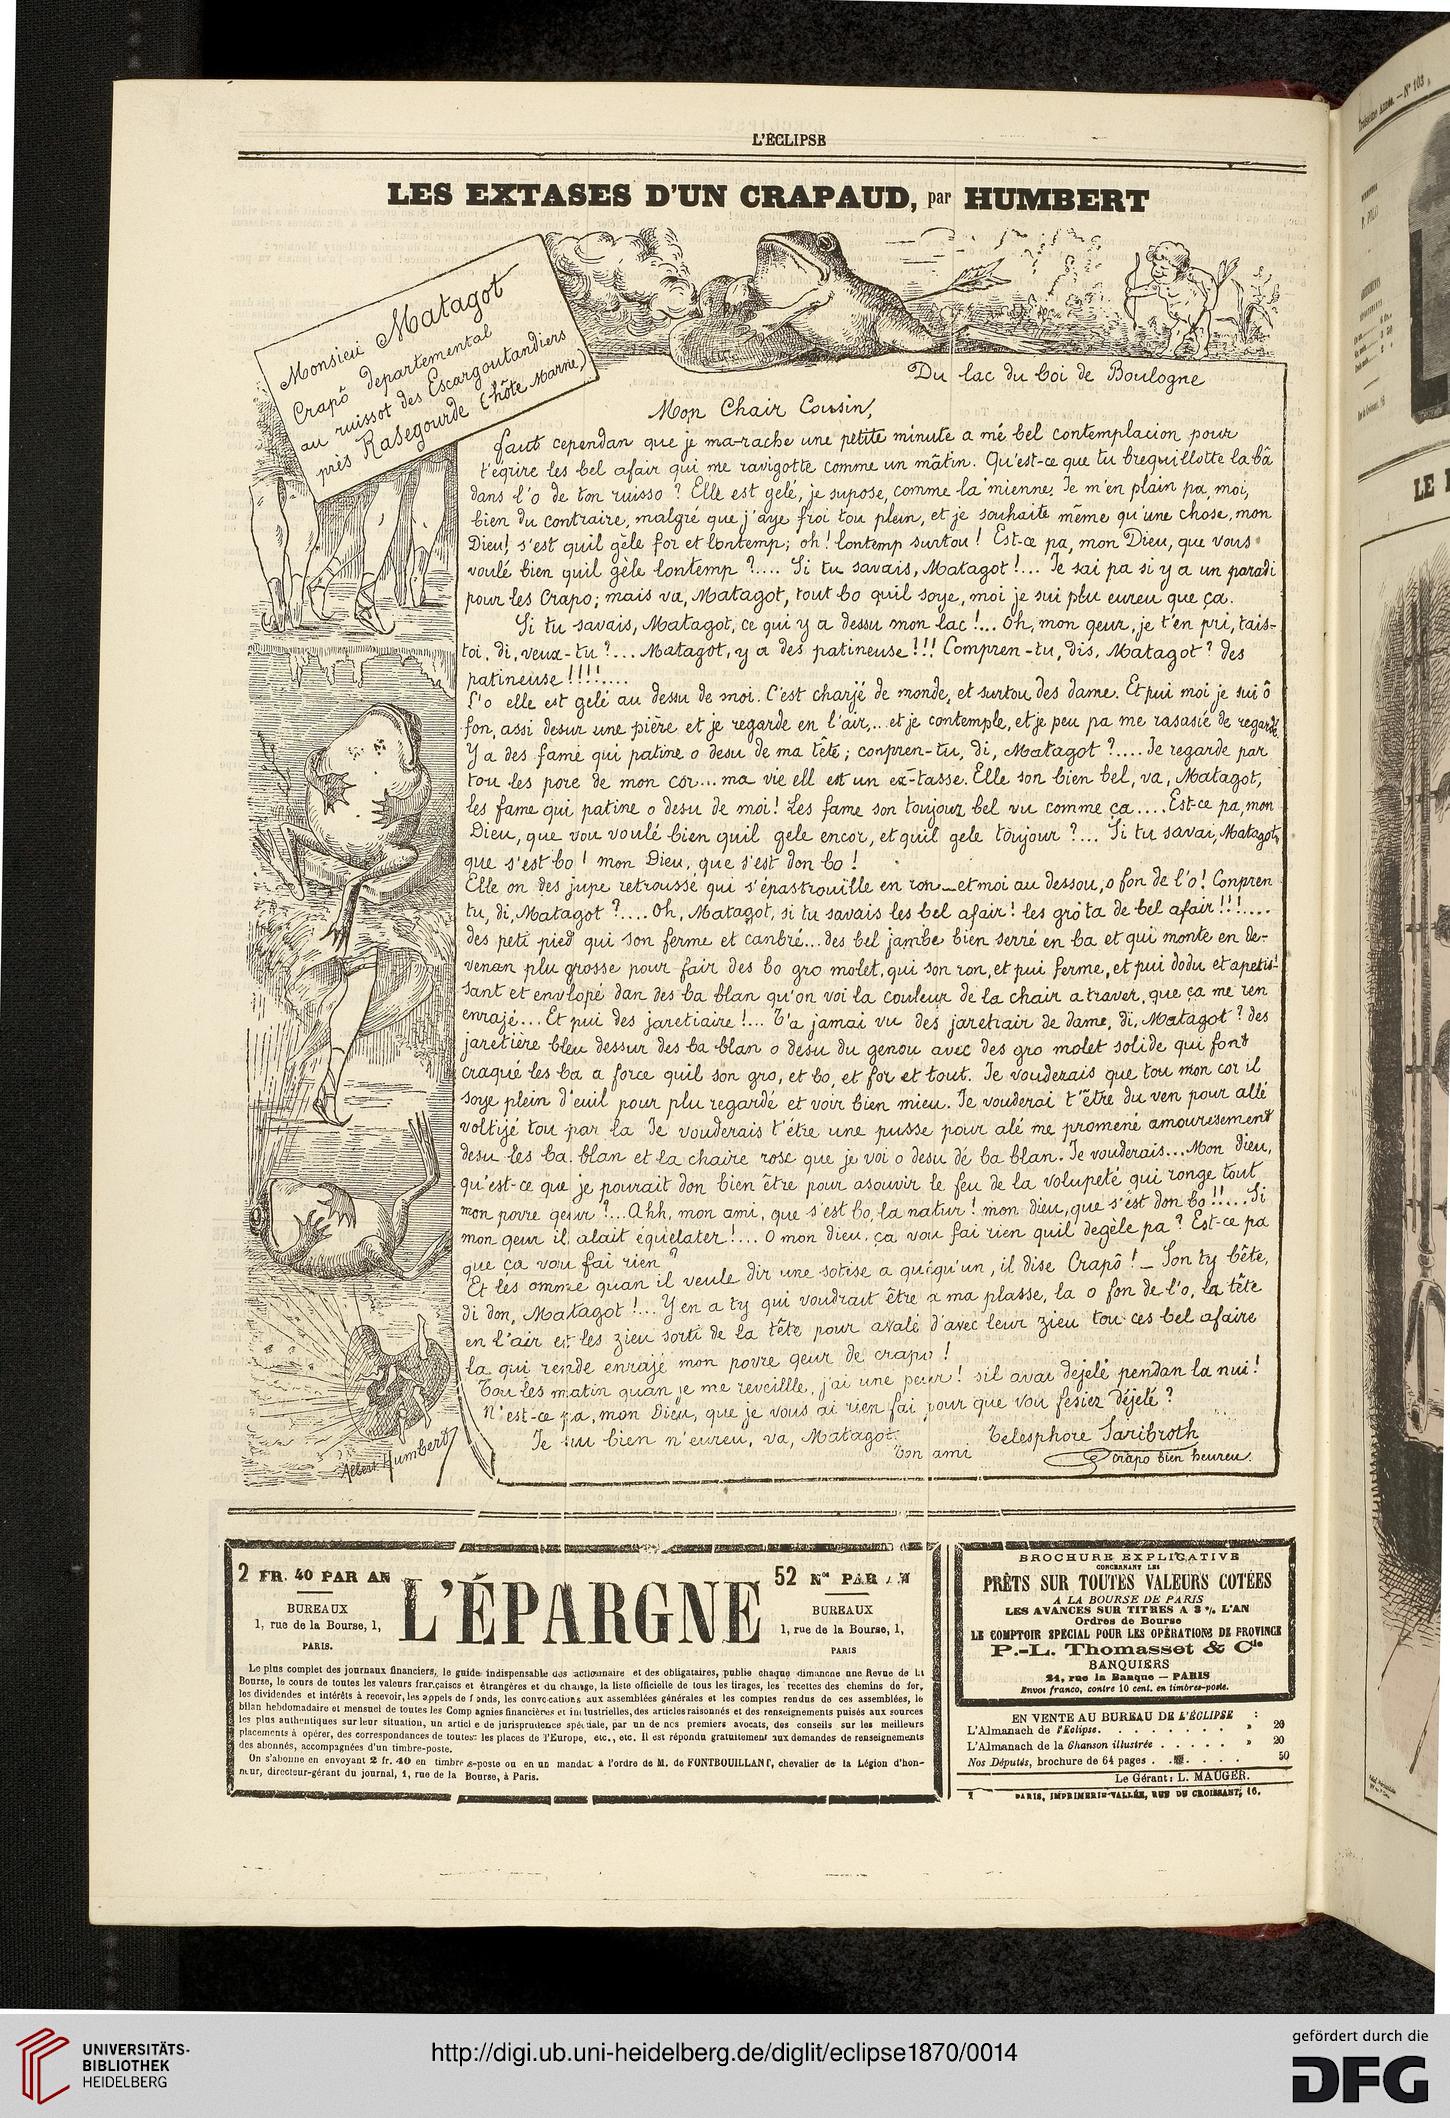 L'ÉCLIPSE
LES EXTASES D'UN CRAPAUD, par HUMBERT
Monsieu Matagot
Crapô departemental
au ruissot des Escargoutandiers
près Rasegourde (hôte Marne)
Du lac du boi de Boulogne
Mon Chair Cousin,
faut cependan que je ma-rache une petite minute a mé bel contemplacion pour
t'eqrire les bel afair qui me ravigotte comme un mâtin. Qu'est-ce que tu brequillotte la bâ
dans l'o de ton ruisso ? Elle est gelé, je supose, comme la mienne. Je m'en plain pa, moi,
bien du contraire, malgré que j'aye froi tou plein, et je souhaite même qu'une chose, mon
Dieu! s'est quil gèle for et lontemp; oh! lontemp surtou ! Est-ce pa, mon Dieu, que vous
voulé bien quil gèle lontemp ?.... Si tu savais, Matagot!... Je sai pa si y a un paradi
pour les Crapo; mais va, Matagot, tout bo quil soye, moi je sui plu eureu que ça.
Si tu savais, Matagot, ce qui y a dessu mon lac !... Oh, mon qeur, je t'en pri, tais-
toi, di, veux-tu ?... Matagot, y a des patineuse !!! Compren-tu, dis, Matagot ? des
patineuse !!!!....
L'o elle est gelé au dessu de moi. C'est charjé de monde, et surtou des dame. Et pui moi je sui ô
fon, assi desur une pière et je regarde en l'air,... et je contemple, et je peu pa me rasasié de regardé.
Y a des fame qui patine o desu de ma tête ; conpren-tu, di, Matagot ?.... Je regarde par
tou les pore de mon cor... ma vie ell est un ex-tasse. Elle son bien bel, va, Matagot,
les fame qui patine o desu de moi! Les fame son toujour bel vu comme ça .... Est-ce pa, mon
Dieu, que vou voulé bien quil gele encor, et quil gele toujour ?... Si tu savai, Matagot,
que s'est bo ! mon Dieu, que s'est don bo !
Elle on des jupe retroussé qui s'épastrouille en ron _ et moi au dessou, o fon de l'o! Conpren
tu, di, Matagot ?.... Oh, Matagot, si tu savais les bel afair! les gro ta de bel afair !!!....
des peti pied qui son ferme et canbré... des bel jambe bien serré en ba et qui monte en de-
venan plu grosse pour fair des bo gro molet, qui son ron, et pui ferme, et pui dodu et apetis-
sant et envlopé dan des ba blan qu'on voi la couleur de la chair a traver, que ça me ren
enrajé... Et pui des jaretiaire !... T'a jamai vu des jaretiair de dame, di, Matagot ? des
jaretière bleu dessur des ba blan o desu du genou avec des gro molet solide qui font
craqué les ba a force quil son gro, et bo, et for et tout. Je vouderais que tou mon cor il
soye plein d'euil pour plu regardé et voir bien mieu. Je vouderai t'être du ven pour allé
voltijé tou par la Je vouderais t'étre une pusse pour alé me promené amouresement
desu les ba blan et la chaire rose que je voi o desu dé ba blan. Je vouderais... Mon dieu,
qu'est-ce que je pourait don bien être pour asouvir le feu de la volupeté qui ronge tout
mon povre qeur ?... Ahh, mon ami, que s'est bo, la natur ! mon dieu, que s'ést don bo !!.... Si
mon qeur il alait équelater !... O mon dieu, ça vou fai rien quil degèle pa ? Est-ce pa
que ça vou fai rien ?
Et les omme quan il veule dir une sotise a quéqu'un, il dise Crapô ! _ Son ty bête,
di don, Matagot !... Y en a ty qui voudrait être a ma plasse, la o fon de l'o, la tête
en l'air et les zieu sorti de la tête pour avalé d'avec leur zieu tou ces bel afaire
la qui rende enrajé mon povre qeur de crapo !
Tou les matin quan je me reveillle, j'ai une peur ! sil avai déjelé pendan la nui !
N'est-ce pa, mon Dieu, que je vous ai rien fai pour que vou fésiez déjelé ?
Je sui bien n'eureu, va, Matagot.
Ton ami
Telesphore Saribroth
Crapo bien heureu.
Albert Humbert
2 FR. 40 PAR AN
BUREAUX
1, rue de la Bourse, 1,
PARIS.
L'ÉPARGNE
52 Nos PAR AN
BUREAUX
1, rue de la Bourse, 1,
PARIS
Le plus complet des journaux financiers, le guide indispensable des actionnaire et des obligataires, publie chaque dimanche une Revue de la
Bourse, le cours de toutes les valeurs françaises et étrangères et du change, la liste officielle de tous les tirages, les recettes des chemins de fer,
les dividendes et intérêts à recevoir, les appels de fonds, les convocations aux assemblées générales et les comptes rendus de ces assemblées, le
bilan hebdomadaire et mensuel de toutes les Compagnies financières et industrielles, des articles raisonnés et des renseignements puisés aux sources
les plus authentiques sur leur situation, un article de jurisprudence spéciale, par un de nos premiers avocats, des conseils sur les meilleurs
placements à opérer, des correspondances de toutes les places de l'Europe, etc., etc. Il est répondu gratuitement aux demandes de renseignements
des abonnés, accompagnées d'un timbre-poste.
On s'abonne en envoyant 2 fr. 40 en timbres-poste ou en un mandat à l'ordre de M. de FONTBOUILLANT, chevalier de la Légion d'hon-
neur, directeur-gérant du journal, 1, rue de la Bourse, à Paris.
BROCHURE EXPLICATIVE
CONCERNANT LES
PRÊTS SUR TOUTES VALEURS COTÉES
A LA BOURSE DE PARIS
LES AVANCES SUR TITRES A 3 % L'AN
Ordres de Bourse
LE COMPTOIR SPÉCIAL POUR LES OPÉRATIONS DE PROVINCE
P.-L. Thomasset & Cie
BANQUIERS
24, rue la Banque — PARIS
Envoi franco, contre 10 cent. en timbres-poste.
EN VENTE AU BUREAU DE L'ÉCLIPSE :
L'Almanach de l'Eclipse. . . . . . . . . » 20
L'Almanach de la Chanson illustrée . . . . . » 20
Nos Députés, brochure de 64 pages . . . . . . 50
Le Gérant : L. MAUGER.
PARIS, IMPRIMERIE VALLÉE, RUE DU CROISSANT, 16.
Troisième Année. — N° 103
LE
UNIVERSITÄTS-
BIBLIOTHEK
HEIDELBERG
http://digi.ub.uni-heidelberg.de/diglit/eclipse1870/0014
gefördert durch die
DFG